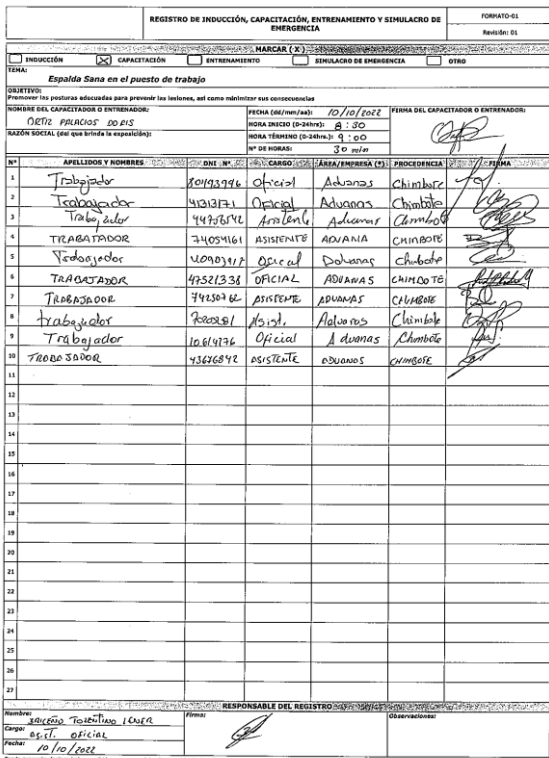 REGISTRO DE INDUCCIÓN, CAPACITACIÓN, ENTRENAMIENTO Y SIMULACRO DE EMERGENCIA
FORMATO-01
Revisión: 01
MARCAR ( X )
INDUCCIÓN X CAPACITACIÓN ENTRENAMIENTO SIMULACRO DE EMERGENCIA OTRO
TEMA:
Espalda Sana en el puesto de trabajo
OBJETIVO:
Promover las posturas adecuadas para prevenir las lesiones, así como minimizar sus consecuencias
NOMBRE DEL CAPACITADOR O ENTRENADOR:
ORTIZ PALACIOS DORIS
RAZÓN SOCIAL (del que brinda la exposición):
FECHA (dd/mm/aa): 10/10/2022
HORA INICIO (0-24hrs): 8:30
HORA TÉRMINO (0-24hrs.): 9:00
N° DE HORAS: 30 min
FIRMA DEL CAPACITADOR O ENTRENADOR:
N° APELLIDOS Y NOMBRES DNI N° CARGO ÁREA/EMPRESA (*) PROCEDENCIA FIRMA
1 Trabajador Oficial Aduanas Chimbote
2 Trabajador 41313171 Oficial Aduanas Chimbote
3 Trabajador Asistente Aduanas Chimbote
4 TRABAJADOR 74054161 ASISTENTE ADUANA CHIMBOTE
5 Trabajador Oficial Chimbote
6 TRABAJADOR 47521338 OFICIAL ADUANAS CHIMBOTE
7 TRABAJADOR ASISTENTE ADUANAS CHIMBOTE
8 trabajador Asist. Aduanas Chimbote
9 Trabajador Oficial Aduanas Chimbote
10 TRABAJADOR 43676842 ASISTENTE ADUANAS CHIMBOTE
11
12
13
14
15
16
17
18
19
20
21
22
23
24
25
26
27
RESPONSABLE DEL REGISTRO
Nombre: TOLENTINO
Cargo: ASIST. OFICIAL
Fecha: 10/10/2022
Firma:
Observaciones: